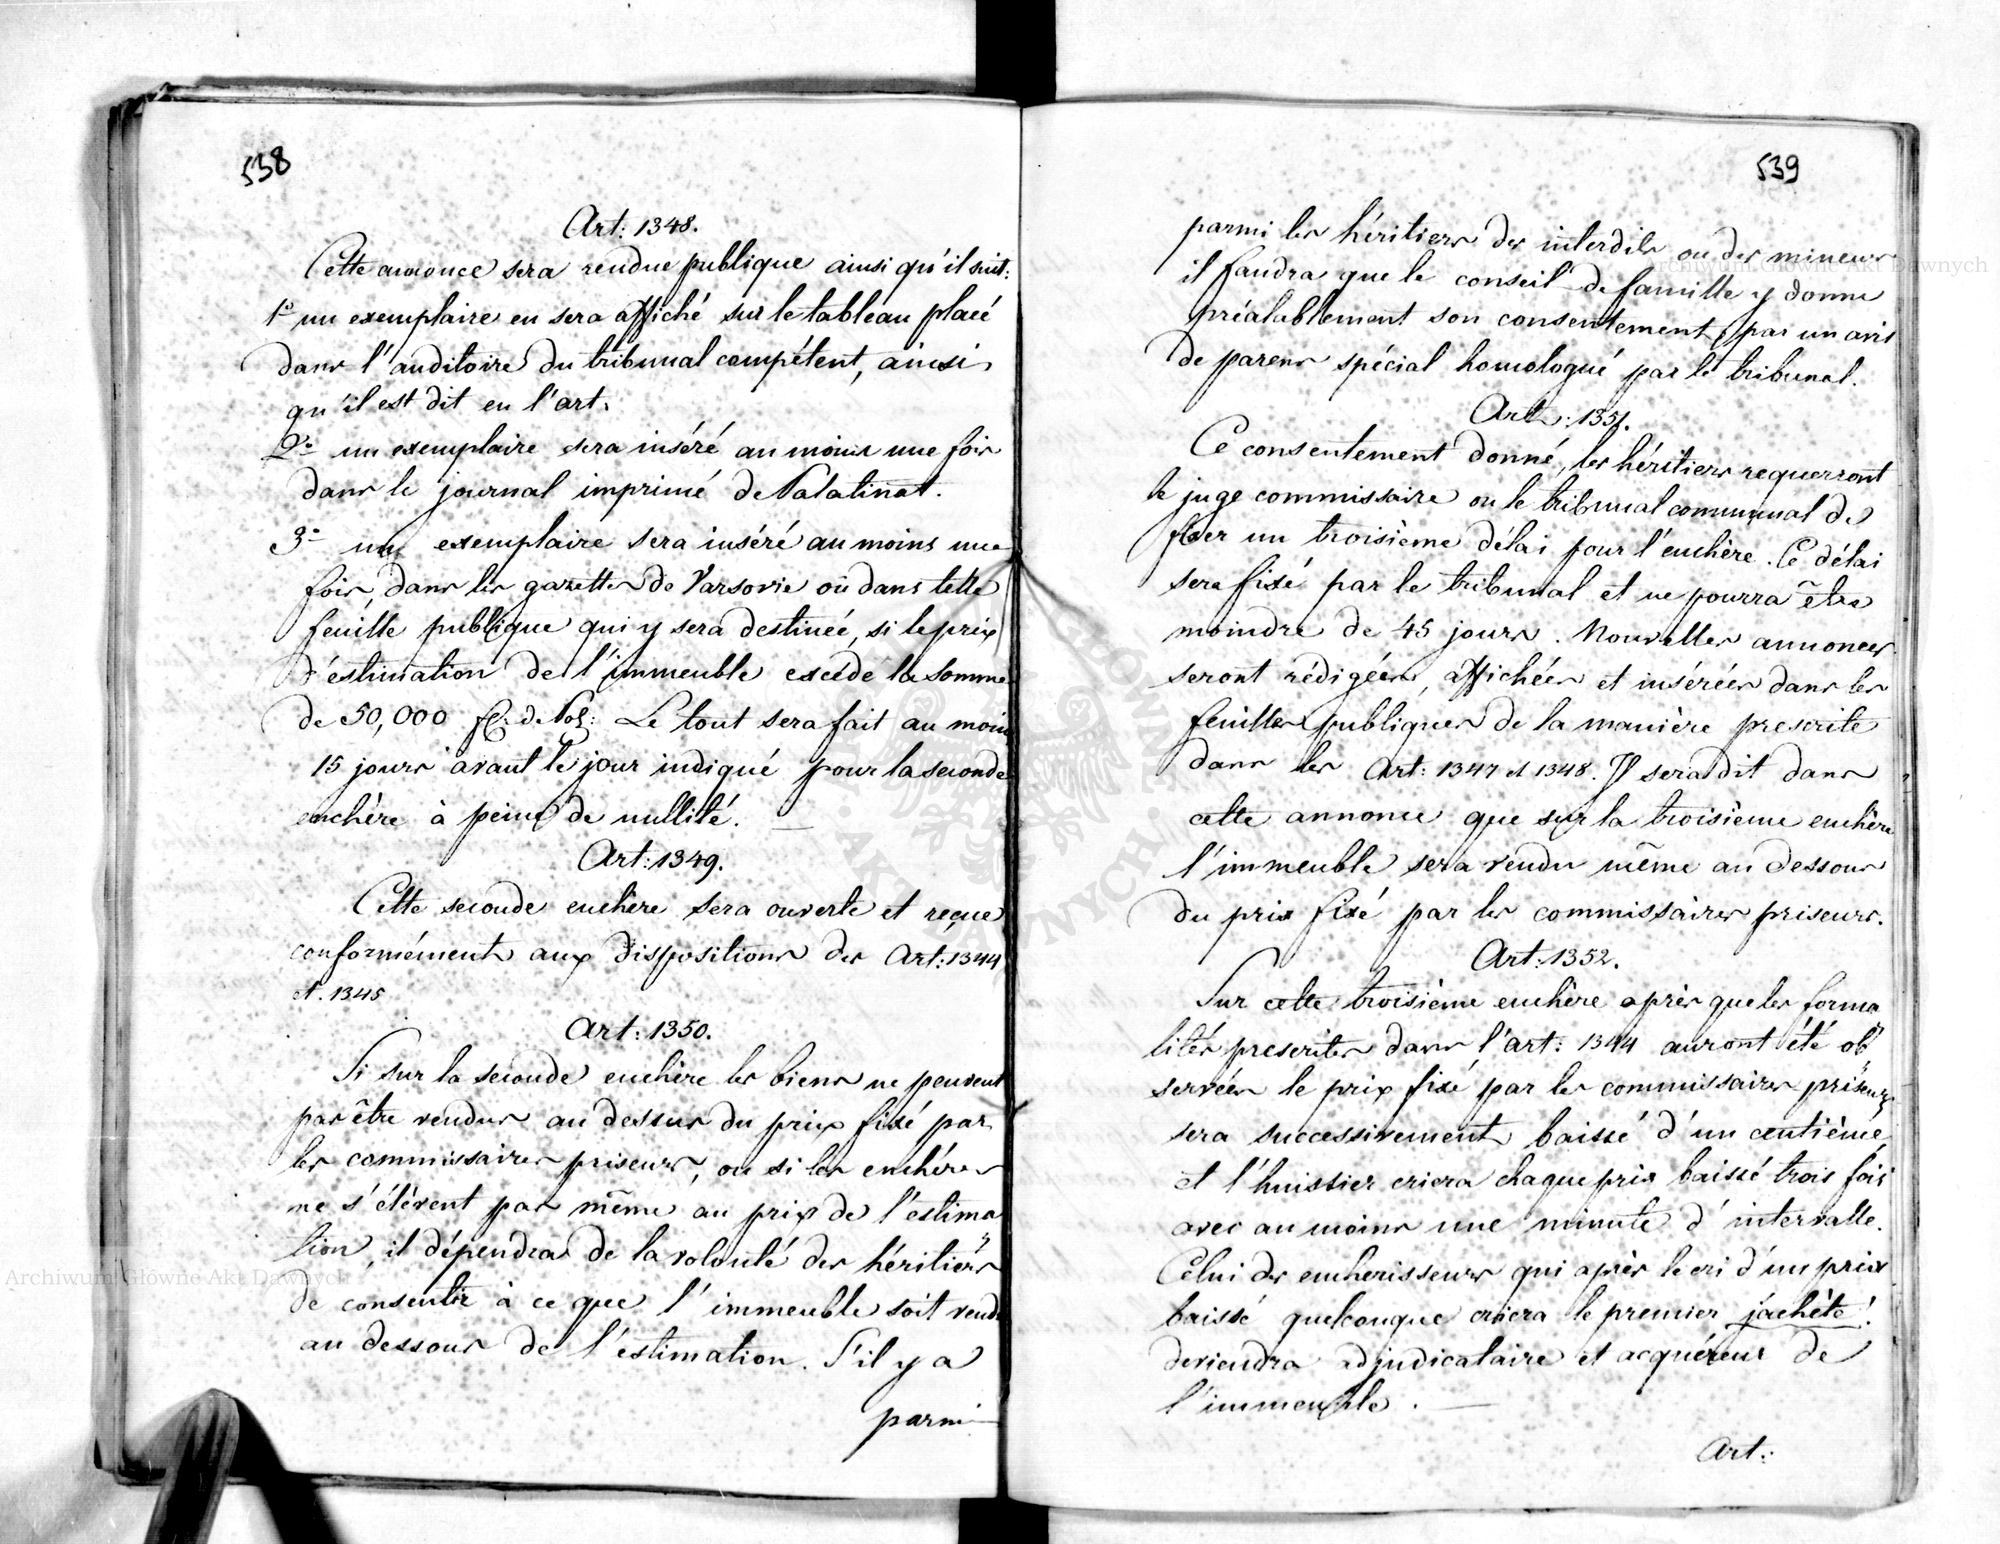 538
Art: 1348.
Cette annonce sera rendue publique ainsi qu'il suit:
1º un exemplaire en sera affiché sur le tableau placé
dans l'auditoire du tribunal compétent, ainsi
qu'il est dit en l'art.
2º un exemplaire sera inséré au moins une fois
dans le journal imprimé de Palatinat.
3º un exemplaire sera inséré au moins une
fois, dans les gazettes de Varsovie ou dans telle
feuille publique qui y sera destinée, si le prix
d'estimation de l'immeuble excéde la somme
de 50,000 fl: de Pol: Le tout sera fait au moins
15 jours avant le jour indiqué pour la seconde
enchère à peine de nullité. —
Art: 1349.
Cette seconde enchère sera ouverte et reçue
conformément aux dispositions des Art: 1344
et. 1345
Art: 1350.
Si sur la seconde enchère les biens ne peuvent
pas être vendus au dessus du prix fixé par
les commissaires priseurs, ou si les enchéres
ne s'élèvent pas même au prix de l'estima
tion, il dépendra de la volonté des héritiers
de consentir à ce que l'immeuble soit vendu
au dessous de l'estimation. S'il y a
parmi
539
parmi les héritiers des interdits ou des mineurs
il faudra que le conseil de famille y donne
préalablement son consentement, par un avis
de parens spécial homologué par le tribunal.
Art: 1351.
Ce consentement donné, les héritiers requerront
le juge commissaire ou le tribunal communal de
fixer un troisième délai pour l'enchère. Ce délai
sera fixé par le tribunal et ne pourra être
moindre de 45 jours. Nouvelles annonces
seront rédigées, affichées et insérées dans les
feuilles publiques de la manière prescrite
dans les Art: 1347 et 1348. Il sera dit dans
cette annonce que sur la troisième enchère
l'immeuble sera vendu même au dessous
du prix fixé par les commissaires priseurs.
Art: 1352.
Sur cette troisième enchère après que les forma
lités prescrites dans l'art: 1344 auront été ob
servées le prix fixé par les commissaires priseurs
sera successivement baissé d'un centième
et l'huissier criera chaque prix baissé trois fois
avec au moins une minute d'intervalle.
Celui des encherisseurs qui après le cri d'un prix
baissé quelconque criera le premier j'achète!
deviendra adjudicataire et acquéreur de
l'immeuble. —
Art:
Archiwum Główne Akt Dawnych
Archiwum Główne Akt Dawnych